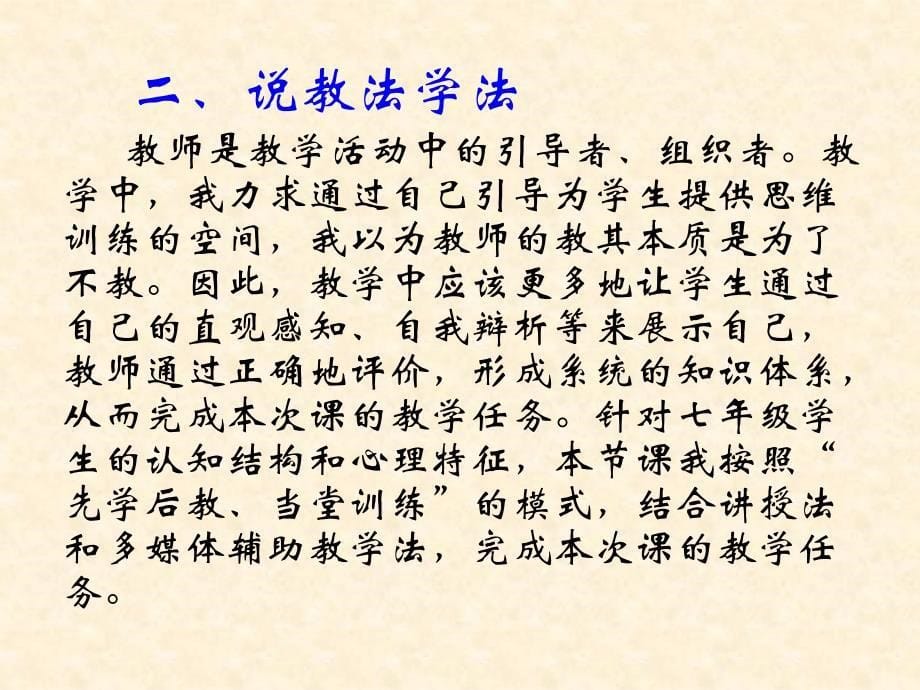 二、说教法学法
教师是教学活动中的引导者、组织者。教
学中，我力求通过自己引导为学生提供思维
训练的空间，我以为教师的教其本质是为了
不教。因此，教学中应该更多地让学生通过
自己的直观感知、自我辩析等来展示自己，
教师通过正确地评价，形成系统的知识体系，
从而完成本次课的教学任务。针对七年级学
生的认知结构和心理特征，本节课我按照“
先学后教、当堂训练”的模式，结合讲授法
和多媒体辅助教学法，完成本次课的教学任
务。